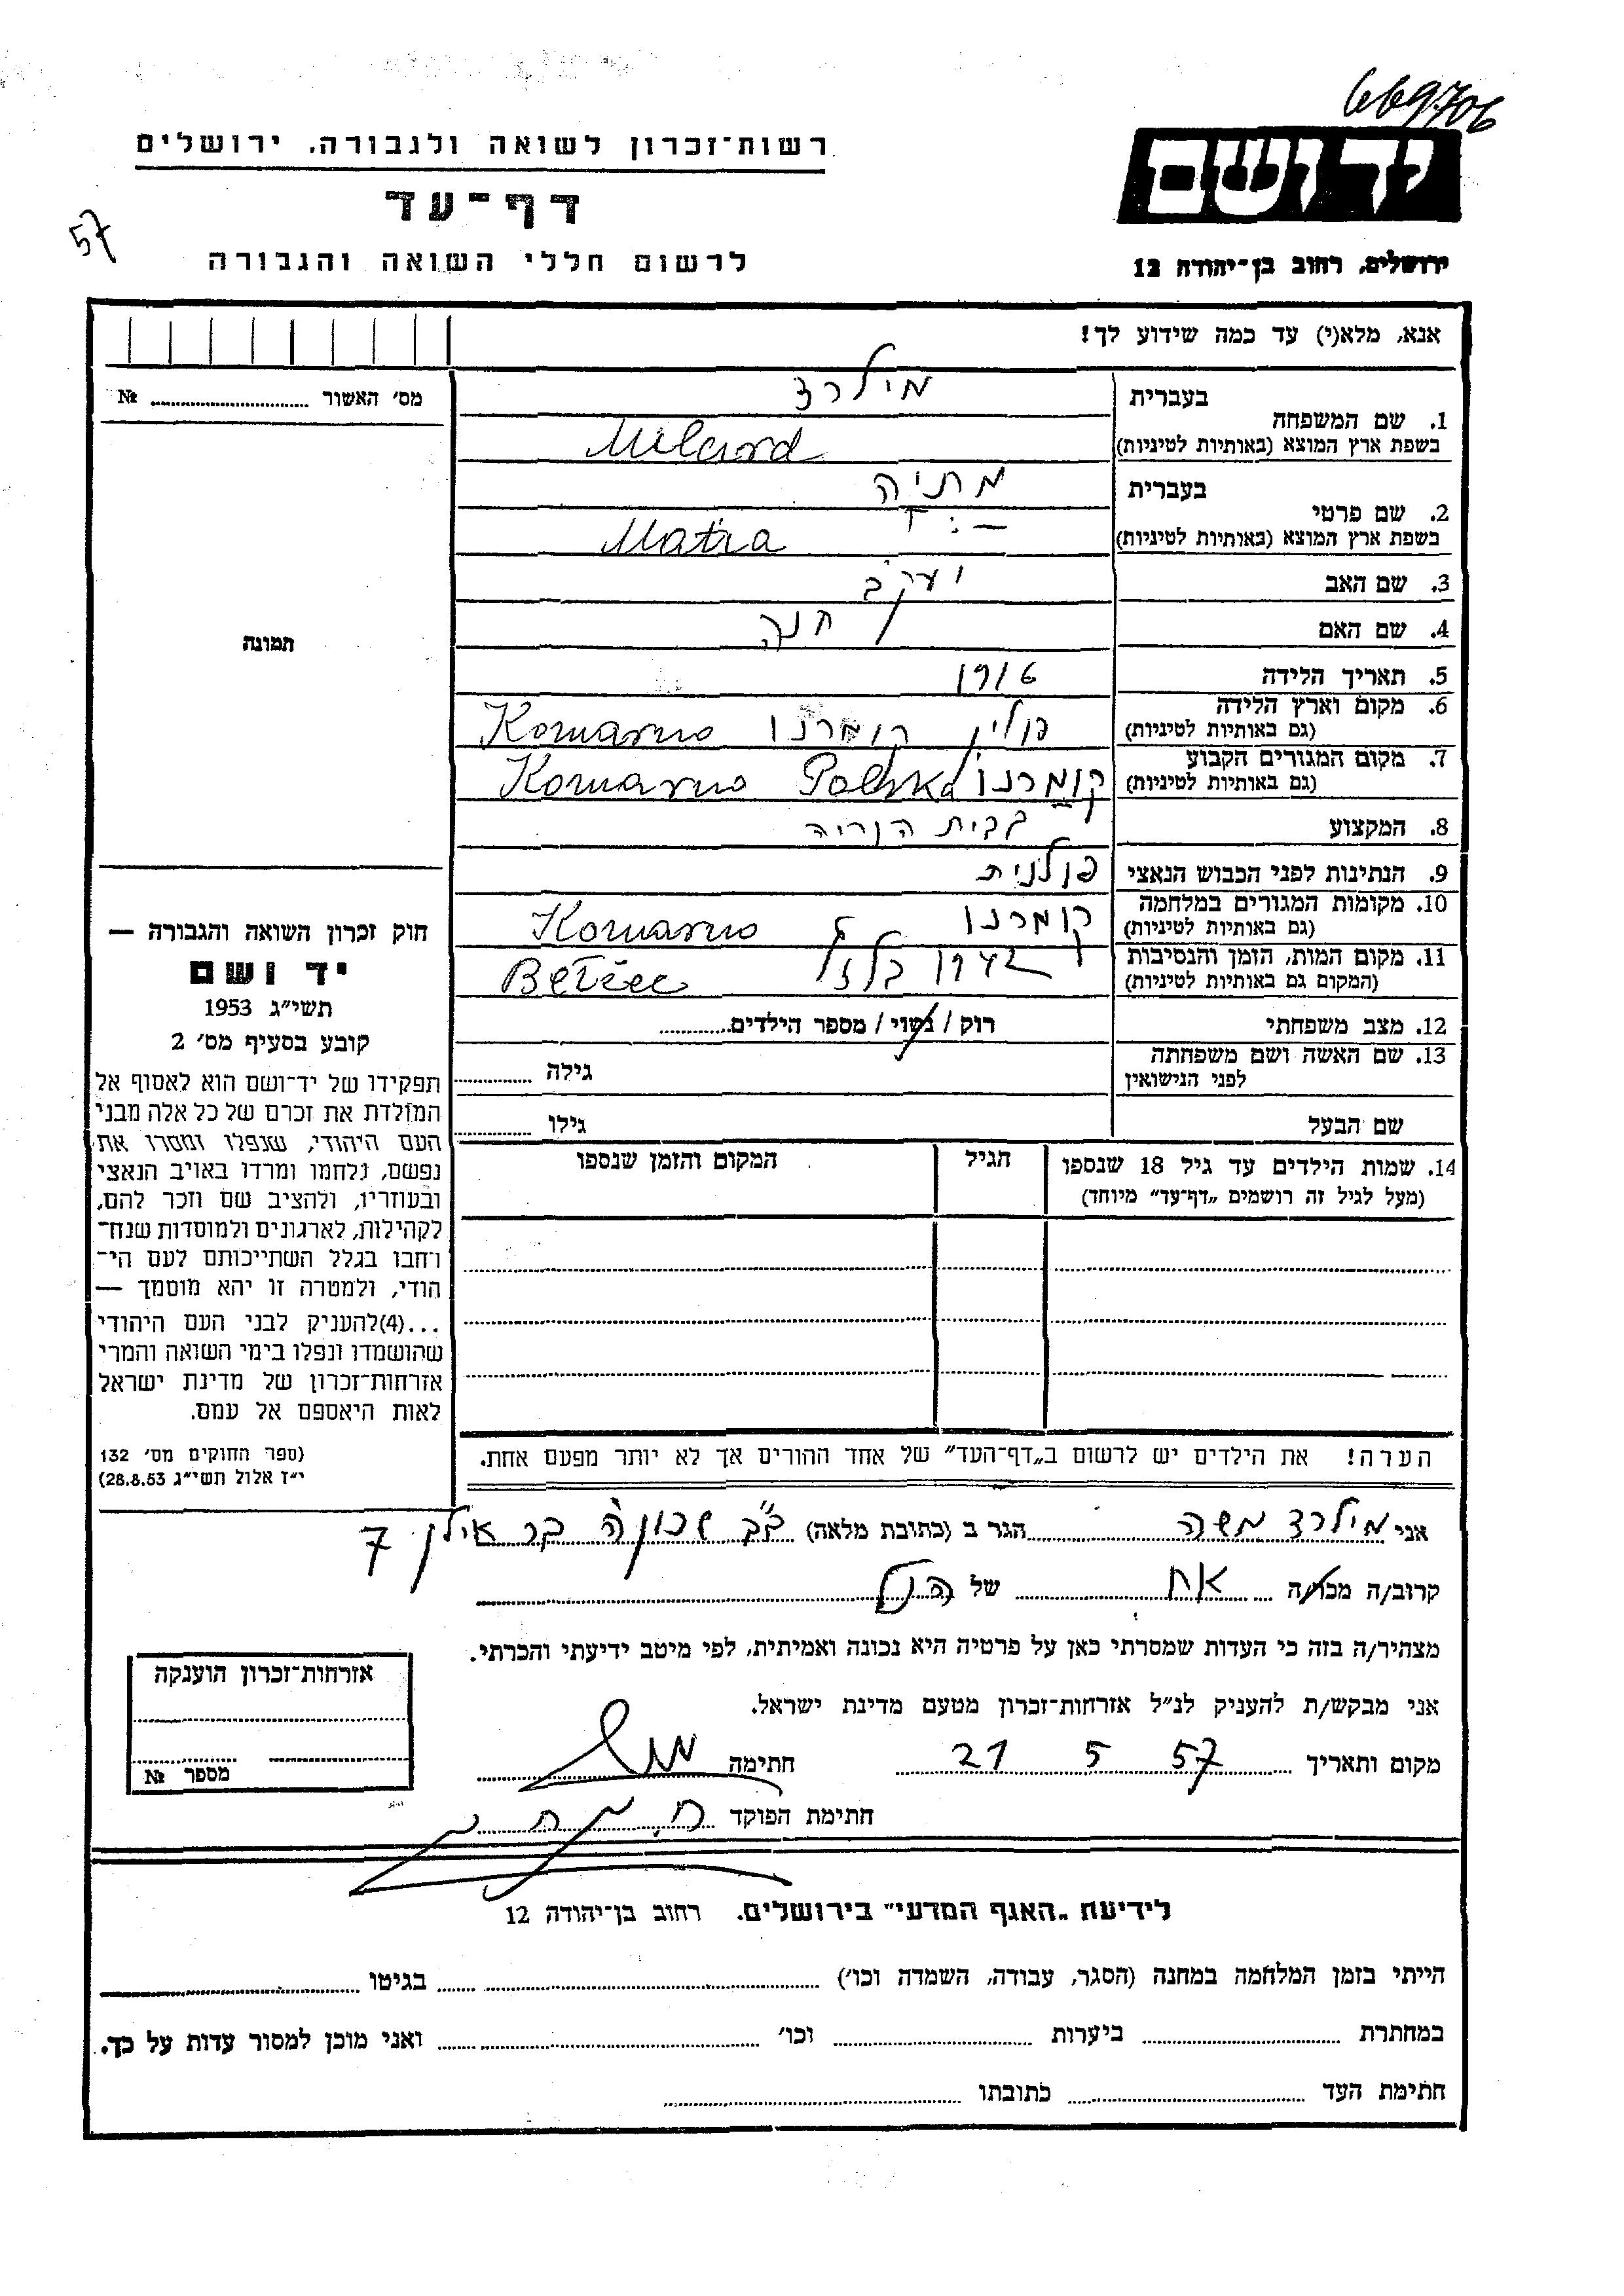 669706
רשות־זכרון לשואה ולגבורה, ירושלים
יד ושם
דף־עד
57
לרשום חללי השואה והגבורה
ירושלים, רחוב בן־יהודה 12
אנא, מלא(י) עד כמה שידוע לך!
מס׳ האשור № 
1. שם המשפחה בעברית מילרד
בשפת ארץ המוצא (באותיות לטיניות) Milard
2. שם פרטי בעברית מתיה
בשפת ארץ המוצא (באותיות לטיניות) Matia
3. שם האב יעקב
4. שם האם חנה
תמונה
5. תאריך הלידה 1916
6. מקום וארץ הלידה (גם באותיות לטיניות) פולין קומרנו Komarno
7. מקום המגורים הקבוע (גם באותיות לטיניות) קומרנו Polska Komarno
8. המקצוע בבית הוריה
9. הנתינות לפני הכבוש הנאצי פולנית
10. מקומות המגורים במלחמה (גם באותיות לטיניות) קומרנו Komarno
11. מקום המות, הזמן והנסיבות (המקום גם באותיות לטיניות) 1942 בלזץ Bełżec
12. מצב משפחתי רוק / נשוי / מספר הילדים
13. שם האשה ושם משפחתה לפני הנישואין גילה
שם הבעל גילו
14. שמות הילדים עד גיל 18 שנספו הגיל המקום והזמן שנספו
(מעל לגיל זה רושמים „דף־עד״ מיוחד)
חוק זכרון השואה והגבורה —
יד ושם
תשי״ג 1953
קובע בסעיף מס׳ 2
תפקידו של יד־ושם הוא לאסוף אל
המולדת את זכרם של כל אלה מבני
העם היהודי, שנפלו ומסרו את
נפשם, נלחמו ומרדו באויב הנאצי
ובעוזריו, ולהציב שם וזכר להם,
לקהילות, לארגונים ולמוסדות שנח־
רחבו בגלל השתייכותם לעם הי־
הודי, ולמטרה זו יהא מוסמך —
...(4)להעניק לבני העם היהודי
שהושמדו ונפלו בימי השואה והמרי
אזרחות־זכרון של מדינת ישראל
לאות היאספם אל עמם.
(ספר החוקים מס׳ 132
י״ז אלול תשי״ג 28.8.53)
הערה! את הילדים יש לרשום ב„דף־העד״ של אחד ההורים אך לא יותר מפעם אחת.
אני מילרד משה הגר ב (כתובת מלאה) ב״ב שכונה בר אילן 7
קרוב/ה מכר/ה אח של הנ״ל
מצהיר/ה בזה כי העדות שמסרתי כאן על פרטיה היא נכונה ואמיתית, לפי מיטב ידיעתי והכרתי.
אני מבקש/ת להעניק לנ״ל אזרחות־זכרון מטעם מדינת ישראל.
מקום ותאריך 21 5 57 חתימה
חתימת הפוקד
אזרחות־זכרון הוענקה
מספר №
לידיעת „האגף המדעי״ בירושלים, רחוב בן־יהודה 12
הייתי בזמן המלחמה במחנה (הסגר, עבודה, השמדה וכו׳) בגיטו
במחתרת ביערות וכו׳ ואני מוכן למסור עדות על כך.
חתימת העד כתובתו